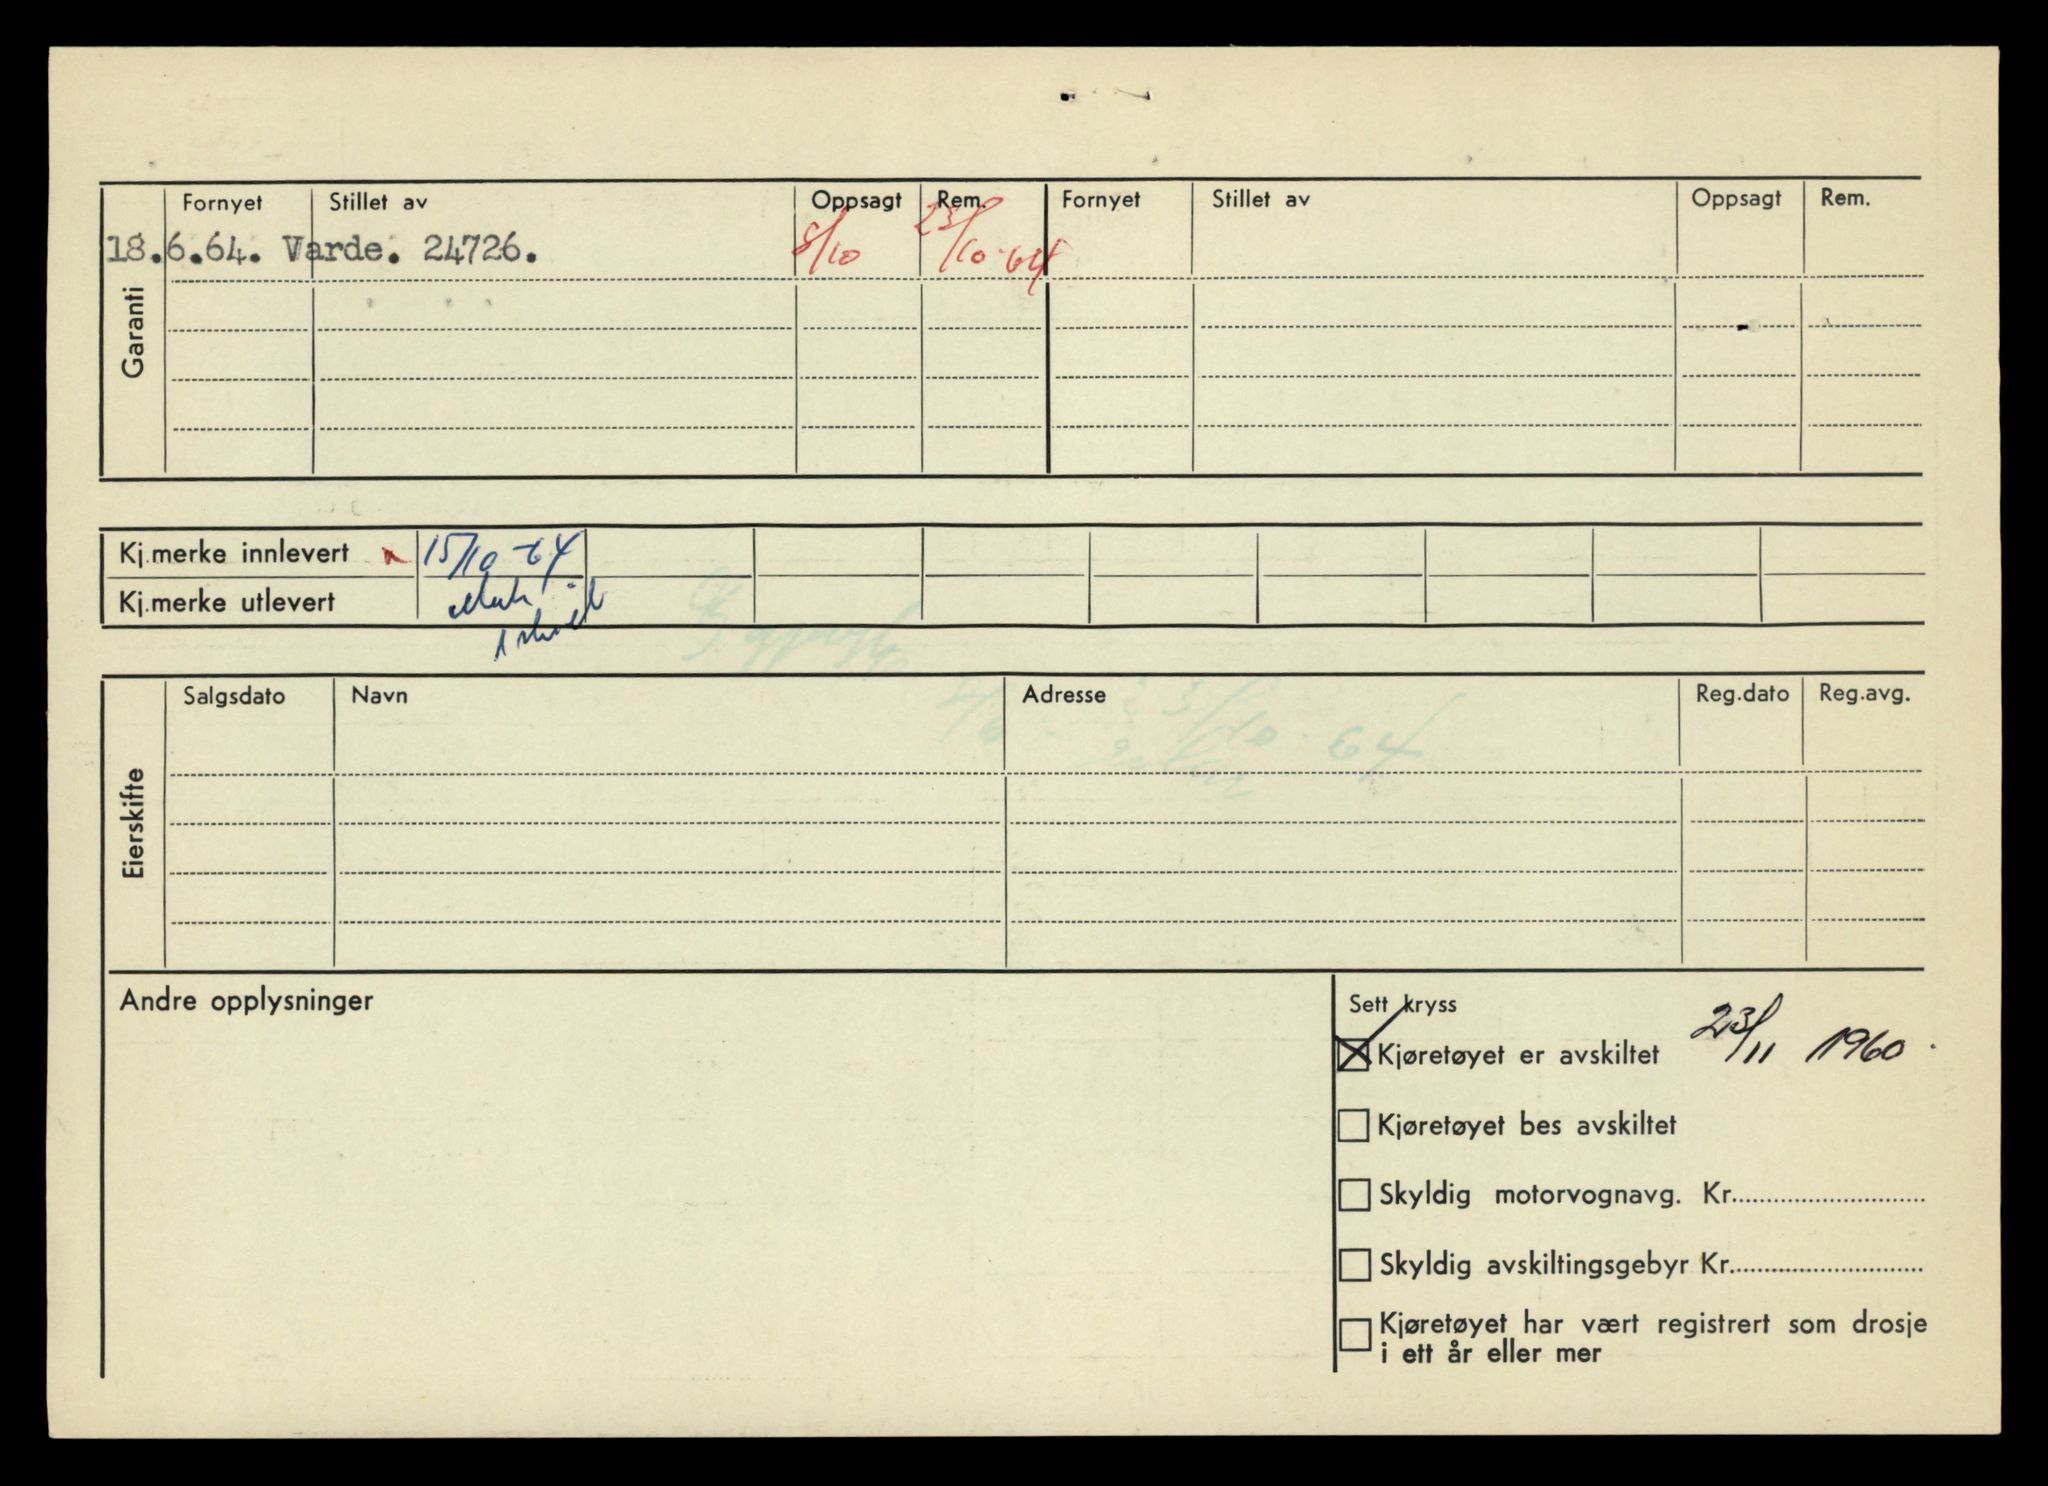 Garanti
Fornyet Stillet av Oppsagt Rem. Fornyet Stillet av Oppsagt Rem.
18.6.64. Varde. 24726. 8/10 23/10-64
Kj.merke innlevert 15/10-64
Kj.merke utlevert
1 skilt
Eierskifte
Salgsdato Navn Adresse Reg.dato Reg.avg.
23/10-64
Andre opplysninger
Sett kryss
Kjøretøyet er avskiltet 23/11 1960.
Kjøretøyet bes avskiltet
Skyldig motorvognavg. Kr.
Skyldig avskiltingsgebyr Kr.
Kjøretøyet har vært registrert som drosje
i ett år eller mer